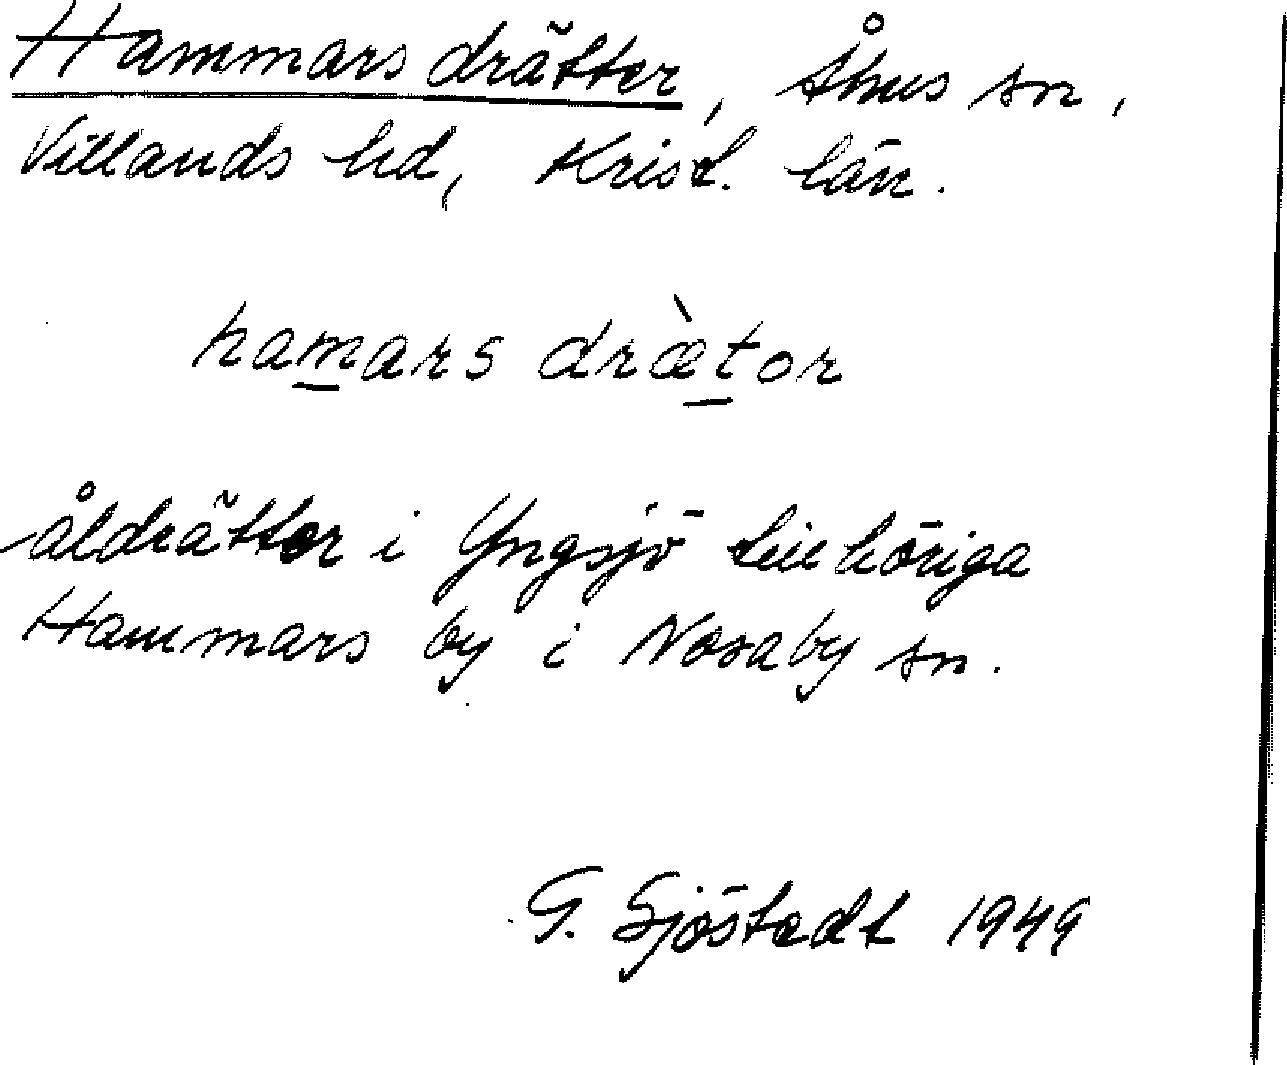 Hammars drätter, Åhus sn,
Villands hd, Krist. län.
hamars dræ̀tor
åldrätter i Yngsjö tillhöriga
Hammars by i Nosaby sn.
G. Sjöstedt 1949